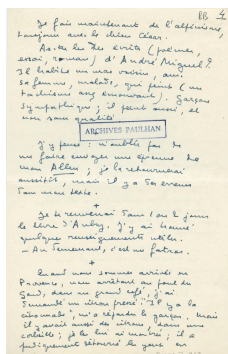 RB 4
Je fais maintenant de l'alpinisme,
toujours avec le chien César.
As-tu lu des écrits (poèmes,
essai, roman) d'André Miguel ?
Il habite un mas voisin, avec
sa femme, malade, qui peint (un
tachisme assez émouvant). Garçon
sympathique ; il peint aussi, et
non sans qualité.
ARCHIVES PAULHAN
J'y pense : n'oublie pas de
me faire envoyer une épreuve de
mon Allen ; je la retournerai
aussitôt, mais il y a des erreurs
dans mon texte.
+
Je te renverrai dans 1 ou 2 jours
le livre d'Aubry. J'y ai trouvé
quelques renseignements utiles.
- Au demeurant, c'est un fatras.
+
Quand nous sommes arrivés en
Provence, nous arrêtant au pont du
Gard, dans un grand café, j'ai
demandé un citron pressé. "Il y a la
citronnade", m'a répondu le garçon, mais
il y avait aussi des citrons, dans une
corbeille ; je les lui ai montrés ; il a
pudiquement détourné les yeux, en